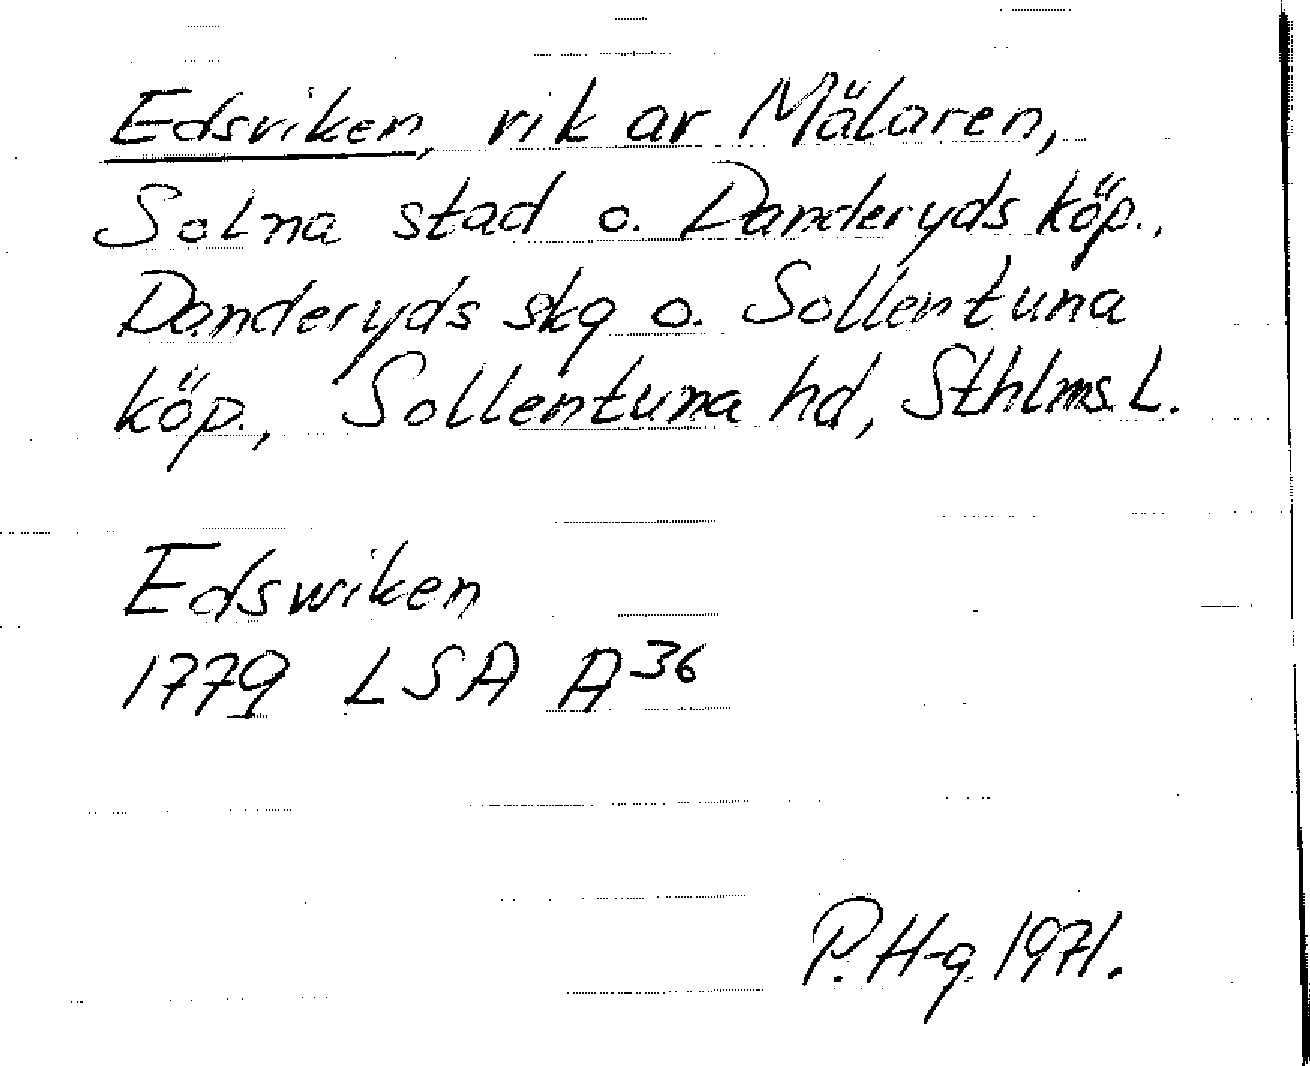 Edsviken, vik av Mälaren,
Solna stad o. Danderyds köp.,
Danderyds skg o. Sollentuna
köp., Sollentuna hd, Sthlms L.
Edswiken
1779 LSA A36
P. H-g. 1971.